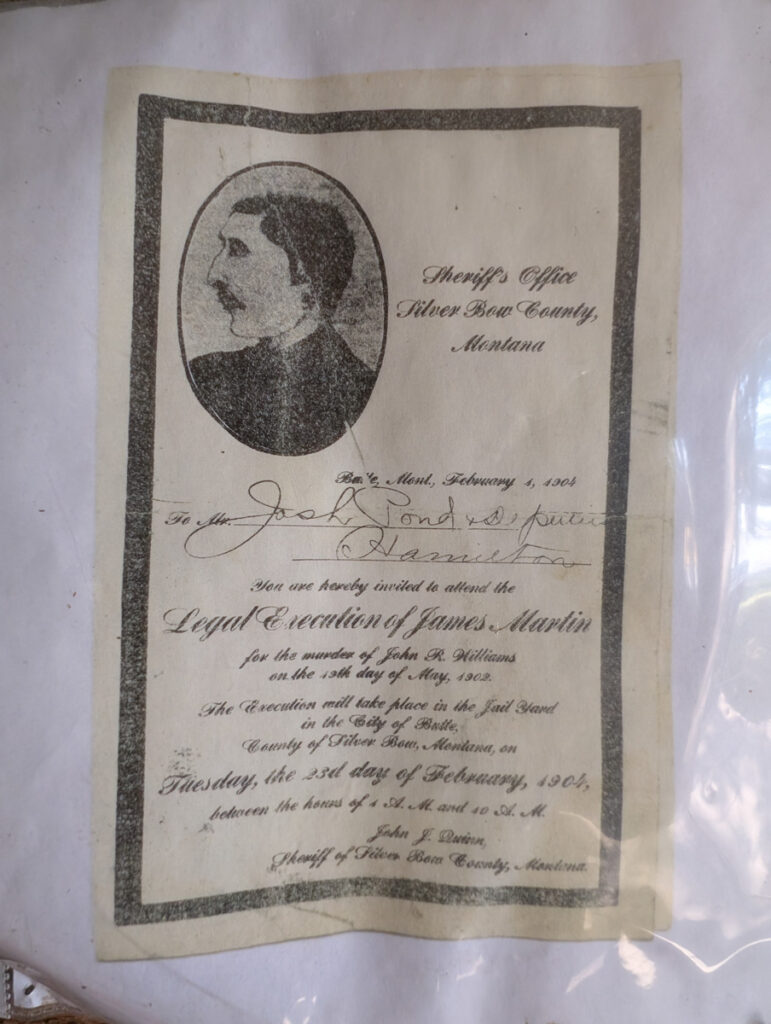 Sheriff's Office
Silver Bow County,
Montana
Butte, Mont., February 1, 1904
To Mr. Josh Pond & Deputies
Hamilton
You are hereby invited to attend the
Legal Execution of James Martin
for the murder of John R. Williams
on the 19th day of May, 1902.
The Execution will take place in the Jail Yard
in the City of Butte,
County of Silver Bow, Montana, on
Tuesday, the 23d day of February, 1904,
between the hours of 1 A. M. and 10 A. M.
John J. Quinn,
Sheriff of Silver Bow County, Montana.